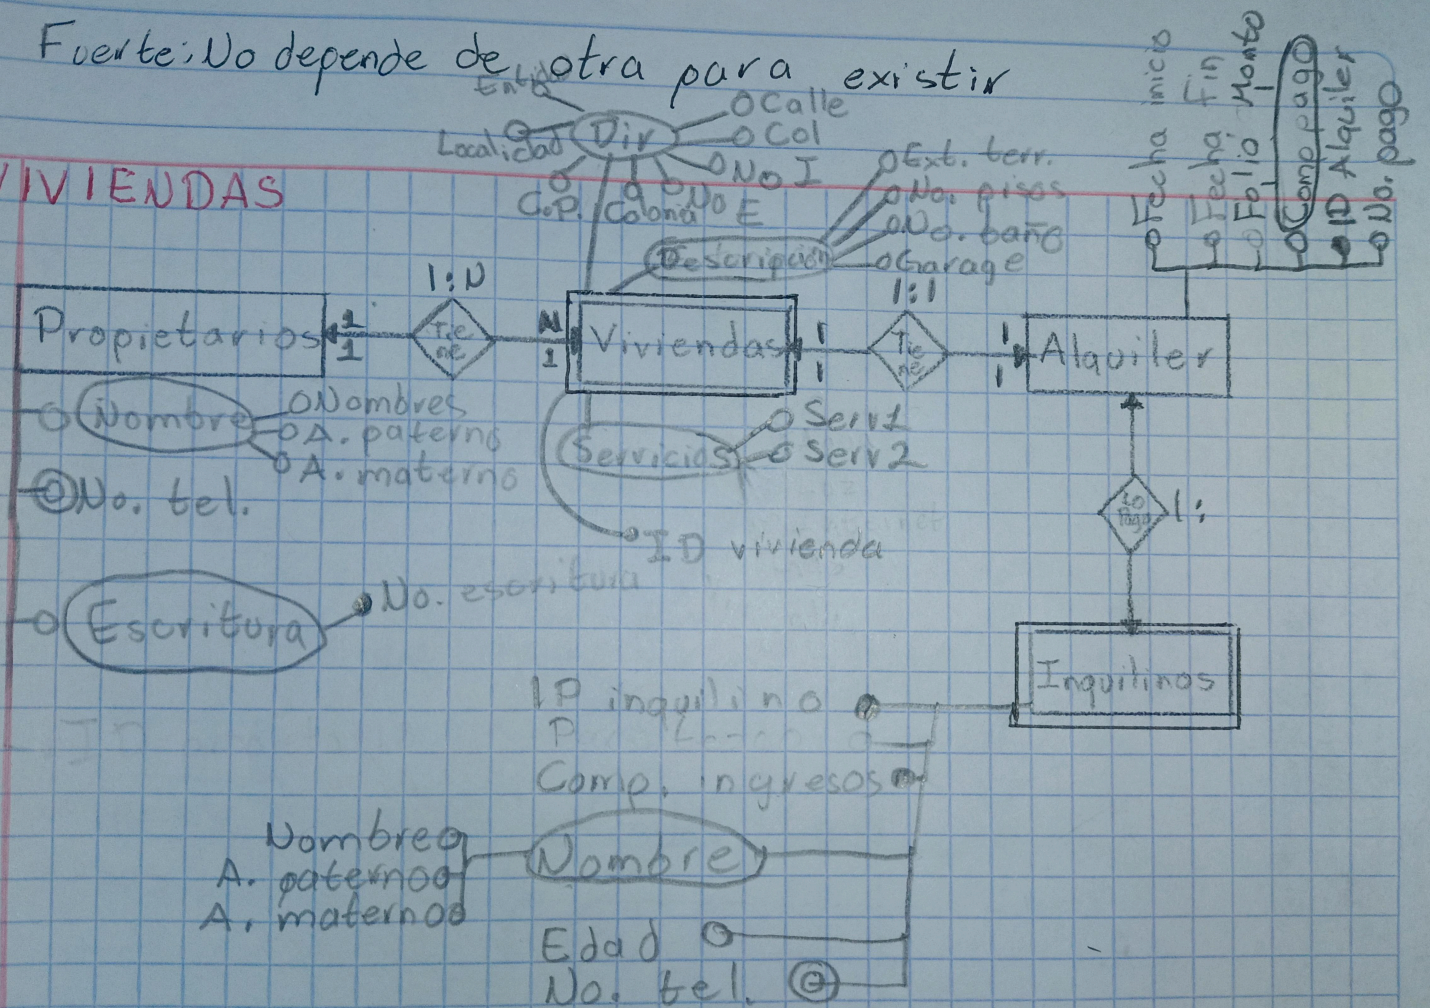 Fuerte: No depende de otra para existir
VIVIENDAS
Dir
Calle
Col
No I
No E
Colonia
C.P.
Localidad
Descripción
Ext. terr.
No. pisos
No. baño
Garage
Fecha inicio
Fecha Fin
Folio Monto
Comp pago
ID Alquiler
No. pago
1:N
1:1
Propietarios
1
1
Tie
ne
N
1
Viviendas
1
1
Tie
ne
1
1
Alquiler
Nombre
Nombres
A. paterno
A. materno
No. tel.
Servicios
Serv1
Serv2
ID vivienda
1:
Escritura
No. escritura
Inquilinos
IP inquilino
P
Comp. ingresos
Nombre
Nombre
A. paterno
A. materno
Edad
No. tel.